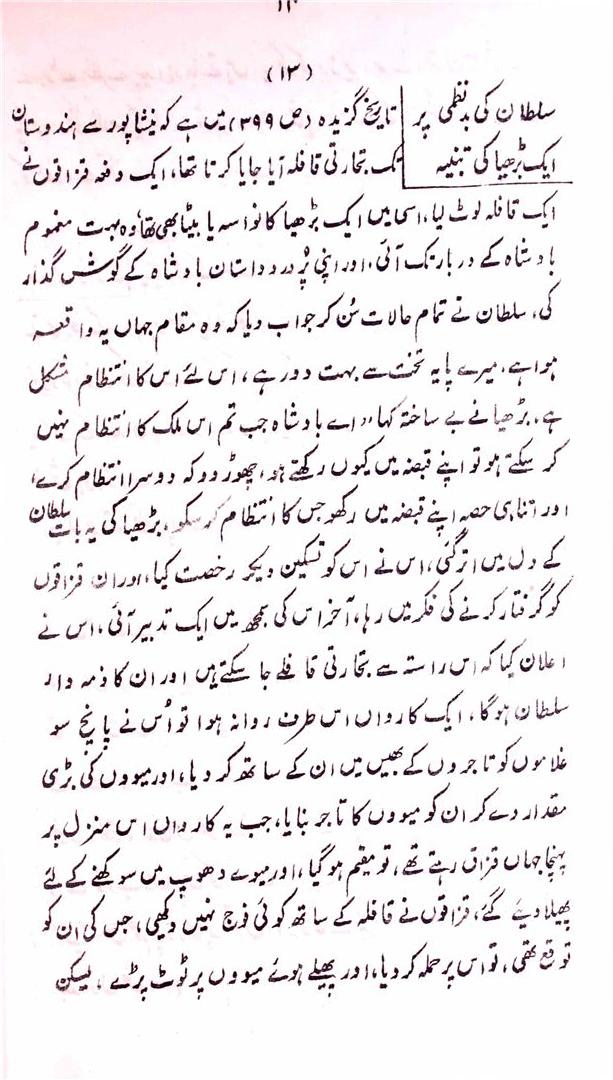 ۱۲
(۱۳)
سلطان کی بدنظمی پر
ایک بڑھیا کی تنبیہ
تاریخ گزیدہ (ص ۳۹۹) میں ہے کہ نیشاپور سے ہندوستان
تک تجارتی قافلہ آیا جایا کرتا تھا، ایک دفعہ قزاقوں نے
ایک قافلہ لوٹ لیا، اسی میں ایک بڑھیا کا نواسہ یا بیٹا بھی تھا، وہ بہت مغموم
بادشاہ کے دربار تک آئی، اور اپنی پُر درد داستان بادشاہ کے گوش گذار
کی، سلطان نے تمام حالات سُن کر جواب دیا کہ وہ مقام جہاں یہ واقعہ
ہوا ہے، میرے پایہ تخت سے بہت دور ہے، اس لئے اس کا انتظام مشکل
ہے، بڑھیا نے بے ساختہ کہا، "اے بادشاہ جب تم اس ملک کا انتظام نہیں
کر سکتے ہو تو اپنے قبضہ میں کیوں رکھتے ہو، چھوڑ دو کہ دوسرا انتظام کرے،
اور اتنا ہی حصہ اپنے قبضہ میں رکھو جس کا انتظام کر سکو، بڑھیا کی یہ بات سلطان
کے دل میں اتر گئی، اس نے اس کو تسکین دیکر رخصت کیا، اور ان قزاقوں
کو گرفتار کرنے کی فکر میں رہا، آخر اس کی سمجھ میں ایک تدبیر آئی، اس نے
اعلان کیا کہ اس راستہ سے تجارتی قافلے جا سکتے ہیں اور ان کا ذمہ دار
سلطان ہو گا، ایک کارواں اس طرف روانہ ہوا تو اُس نے پانچ سو
غلاموں کو تاجروں کے بھیس میں ان کے ساتھ کر دیا، اور میووں کی بڑی
مقدار دے کر ان کو میووں کا تاجر بنایا، جب یہ کارواں اس منزل پر
پہنچا جہاں قزاق رہتے تھے، تو مقیم ہو گیا، اور میوے دھوپ میں سوکھنے کے لئے
پھیلا دیئے گئے، قزاقوں نے قافلہ کے ساتھ کوئی فوج نہیں دیکھی، جس کی ان کو
توقع تھی، تو اس پر حملہ کر دیا، اور پھیلے ہوئے میووں پر ٹوٹ پڑے، لیکن